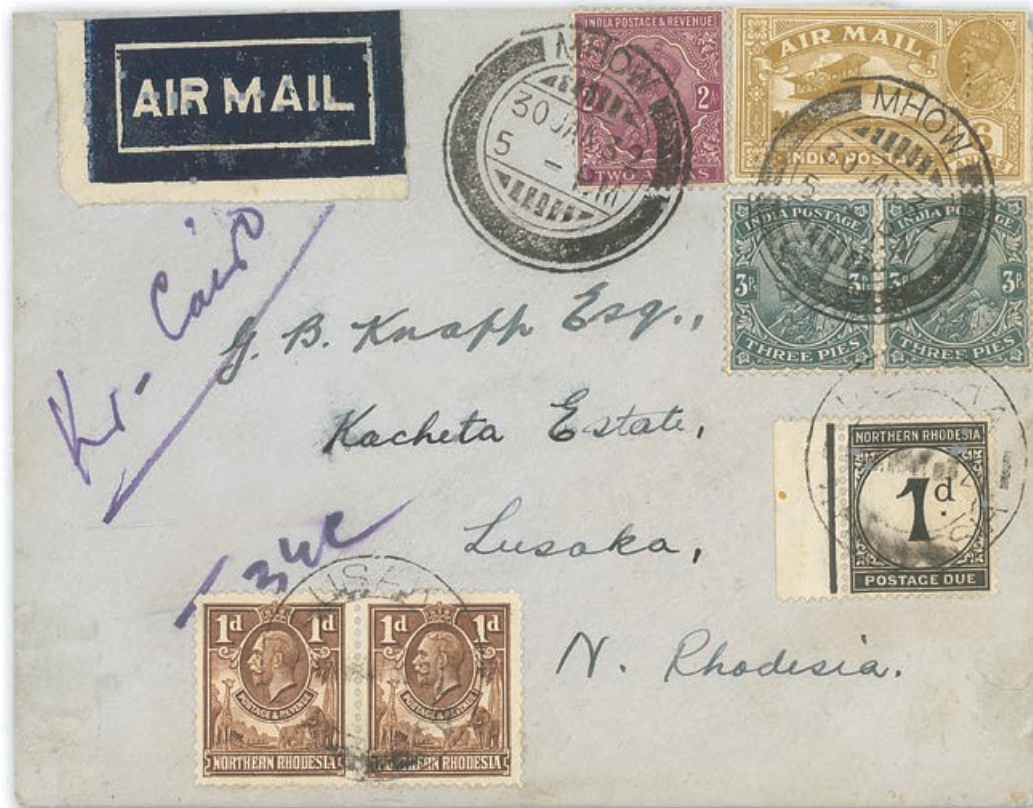 AIR MAIL
INDIA POSTAGE & REVENUE
2
TWO
MHOW
30 JAN 32
5
AIR MAIL
INDIA POSTAGE
6
MHOW
INDIA POSTAGE
3P.
3P.
THREE PIES
INDIA POSTAGE
3P.
3P.
THREE PIES
Cairo
G. B. Knapp Esq.,
Kacheta Estate,
Lusaka,
N. Rhodesia.
NORTHERN RHODESIA
1d.
POSTAGE DUE
1d 1d
POSTAGE & REVENUE
NORTHERN RHODESIA
1d 1d
POSTAGE & REVENUE
NORTHERN RHODESIA